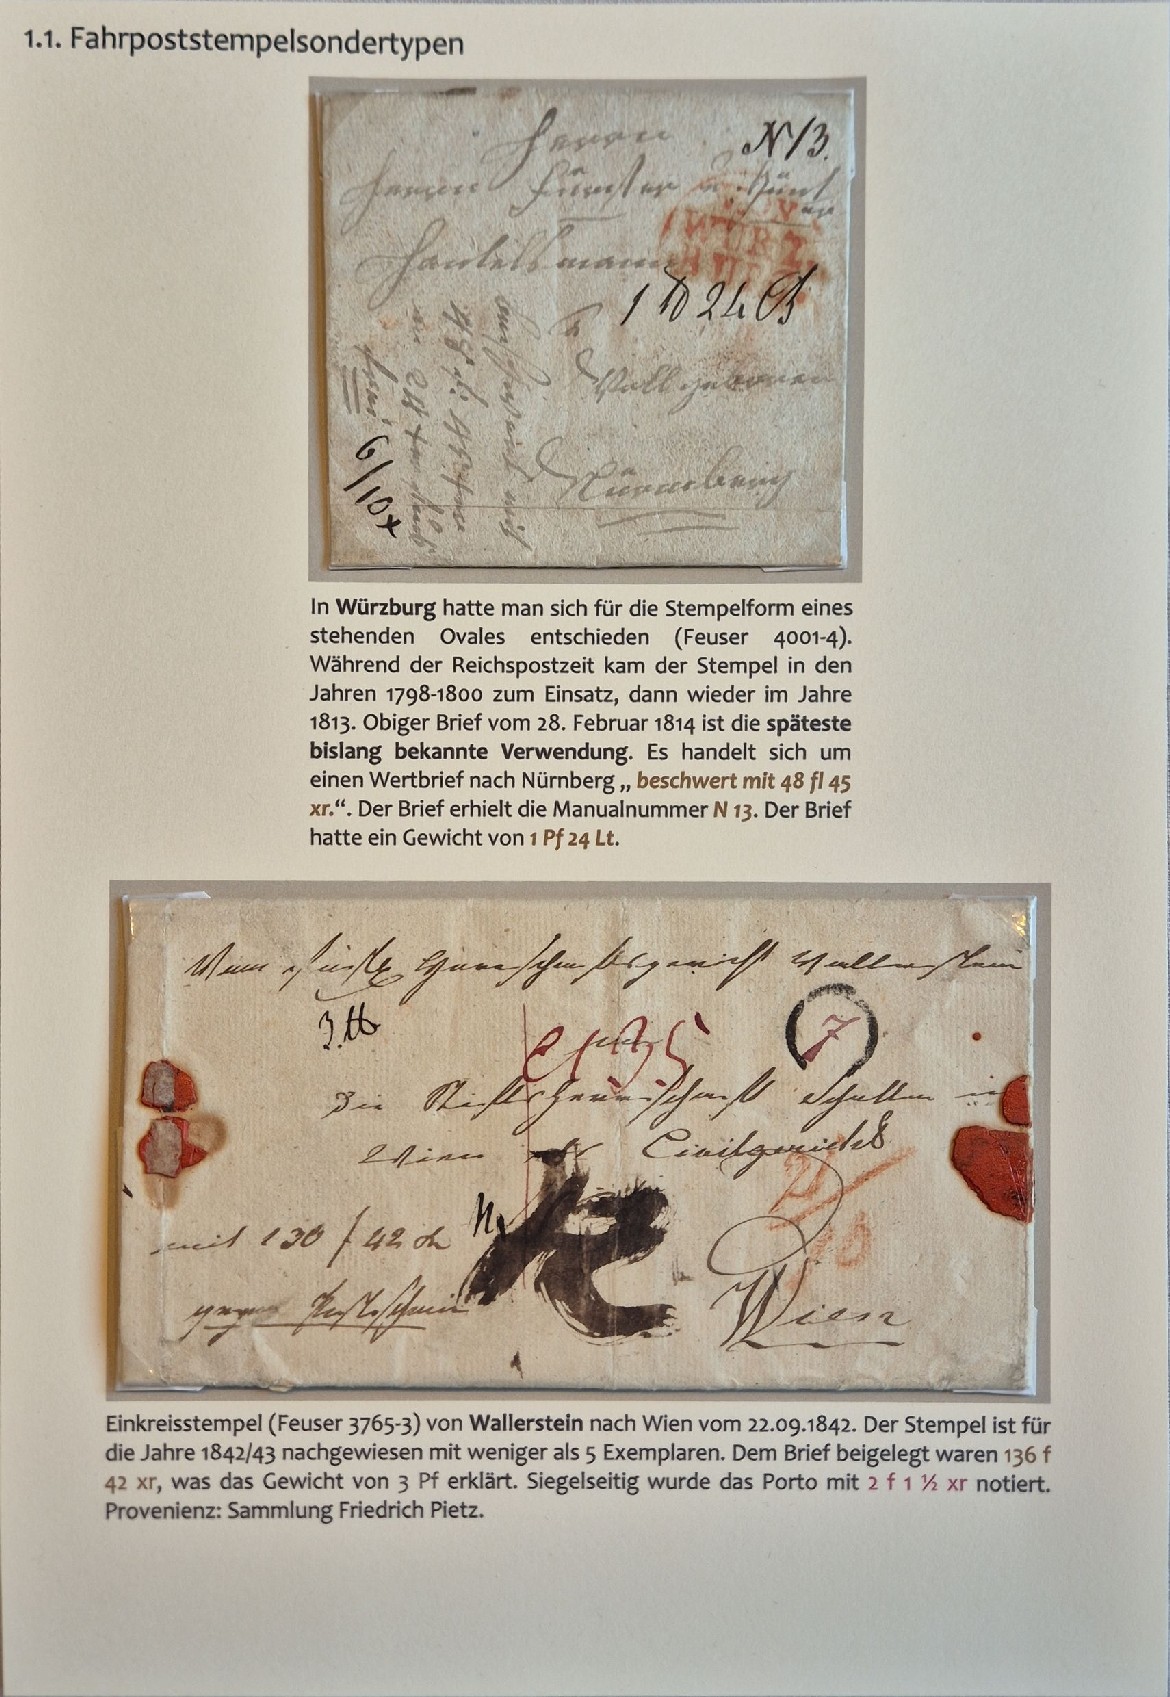 1.1. Fahrpoststempelsondertypen
Herrn
N 13.
Herrn Förster
v.
WÜRZ
BURG
Handelsmann
1 ℔ 24
Wohlgeboren
Nürnberg
beschwert mit
48 fl. 45 xr
frei
6/10x
In Würzburg hatte man sich für die Stempelform eines
stehenden Ovales entschieden (Feuser 4001-4).
Während der Reichspostzeit kam der Stempel in den
Jahren 1798-1800 zum Einsatz, dann wieder im Jahre
1813. Obiger Brief vom 28. Februar 1814 ist die späteste
bislang bekannte Verwendung. Es handelt sich um
einen Wertbrief nach Nürnberg „ beschwert mit 48 fl 45
xr.“. Der Brief erhielt die Manualnummer N 13. Der Brief
hatte ein Gewicht von 1 Pf 24 Lt.
Vom Herrschaftsgericht Wallerstein
3 ℔
7
Die Stiftsherrschaft Schotten in
Wien Civilgericht
Wien
gegen Postschein
Einkreisstempel (Feuser 3765-3) von Wallerstein nach Wien vom 22.09.1842. Der Stempel ist für
die Jahre 1842/43 nachgewiesen mit weniger als 5 Exemplaren. Dem Brief beigelegt waren 136 f
42 xr, was das Gewicht von 3 Pf erklärt. Siegelseitig wurde das Porto mit 2 f 1 ½ xr notiert.
Provenienz: Sammlung Friedrich Pietz.